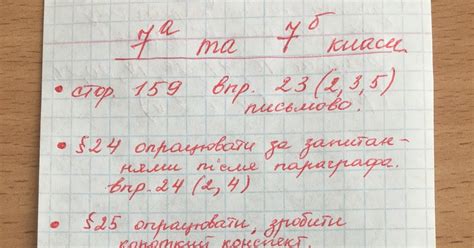 7ᵃ та 7ᵇ класи
• стор. 159 впр. 23 (2, 3, 5)
письмово.
• §24 опрацювати за запитан-
нями після параграфа.
впр. 24 (2, 4)
• §25 опрацювати, зробити
короткий конспект.